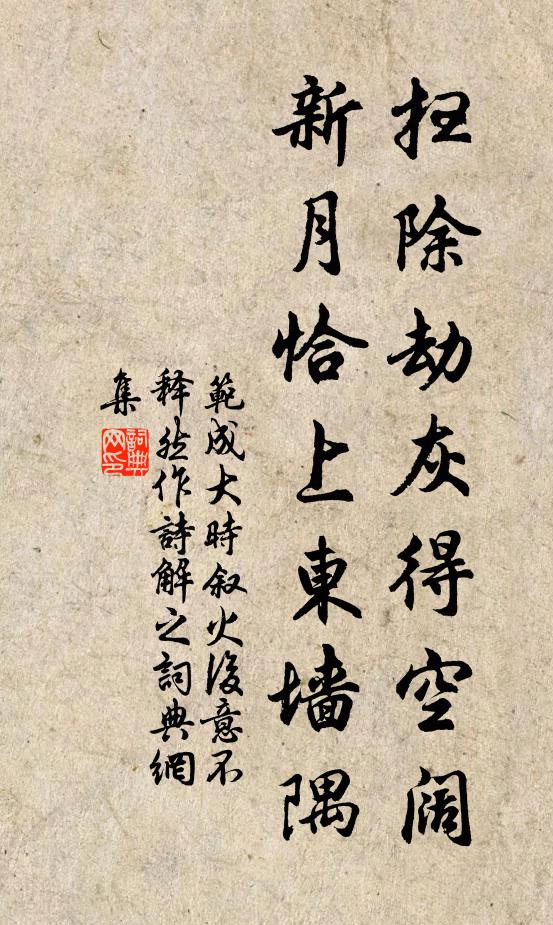 扫除劫灰得空阔
新月恰上東墙隅
範成大時叙火後意不
释然作詩解之詞典網
集
詞典
网印